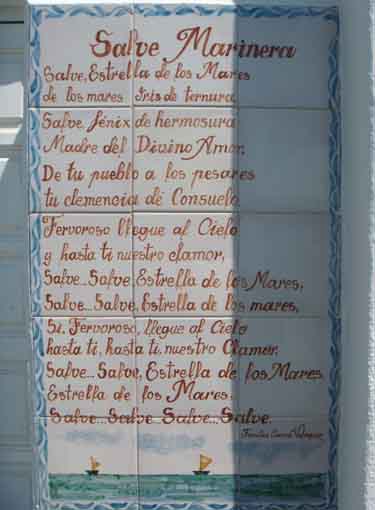 Salve Marinera
Salve, Estrella de los Mares
de los mares Iris de ternura.
Salve, fénix de hermosura
Madre del Divino Amor.
De tu pueblo a los pesares
tu clemencia dé Consuelo.
Fervoroso llegue al Cielo
y hasta ti nuestro clamor,
Salve...Salve, Estrella de los Mares,
Salve...Salve, Estrella de los mares,
Si. Fervoroso, llegue al Cielo
hasta ti, hasta ti, nuestro Clamor,
Salve...Salve, Estrella de los Mares,
Estrella de los Mares,
Salve...Salve Salve...Salve.